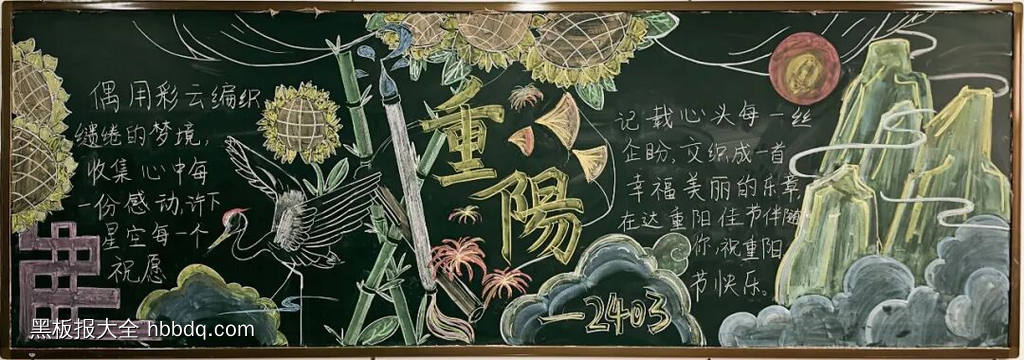 偶用彩云编织
缱绻的梦境,
收集心中每
一份感动,许下
星空每一个
祝愿
重陽
记载心头每一丝
企盼,交织成一首
幸福美丽的乐章
在这重阳佳节伴随
你,祝重阳
节快乐。
一2403
黑板报大全 hbbdq.com